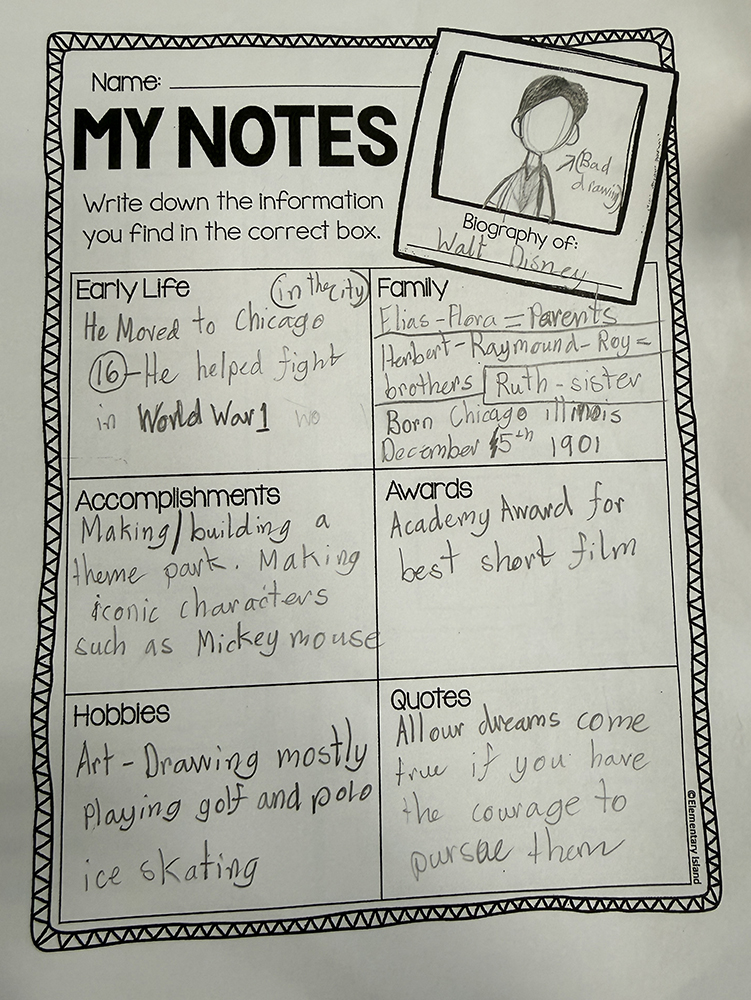 Name:
MY NOTES
Write down the information
you find in the correct box.
(Bad
drawing)
Biography of:
Walt Disney
Early Life
(in the city)
He Moved to Chicago
16-He helped fight
in World War 1 wo
Family
Elias-Flora = Parents
Herbert-Raymound-Roy=
brothers Ruth-sister
Born Chicago illinois
December 5th 1901
Accomplishments
Making/building a
theme park. Making
iconic characters
such as Mickey mouse
Awards
Academy Award for
best short film
Hobbies
Art-Drawing mostly
playing golf and polo
ice skating
Quotes
All our dreams come
true if you have
the courage to
pursue them
©Elementary Island